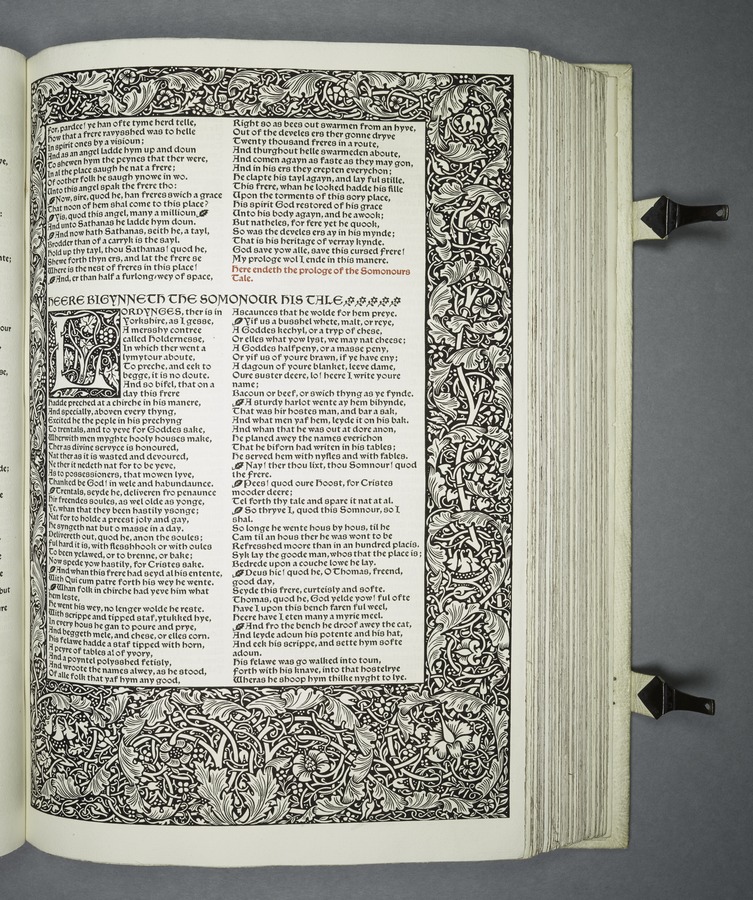 For, pardee! ye han ofte tyme herd telle,
How that a frere ravysshed was to helle
In spirit ones by a visioun;
And as an angel ladde hym up and doun
To shewen hym the peynes that ther were,
In al the place saugh he nat a frere;
Of oother folk he saugh ynowe in wo.
Unto this angel spak the frere tho:
Now, sire, quod he, han freres swich a grace
That noon of hem shal come to this place?
Yis, quod this angel, many a millioun,
And unto Sathanas he ladde hym doun.
And now hath Sathanas, seith he, a tayl,
Brodder than of a carryk is the sayl.
Hold up thy tayl, thou Sathanas! quod he,
Shewe forth thyn ers, and lat the frere se
Where is the nest of freres in this place!
And, er than half a furlong-wey of space,
Right so as bees out swarmen from an hyve,
Out of the develes ers ther gonne dryve
Twenty thousand freres in a route,
And thurghout helle swarmeden aboute,
And comen agayn as faste as they may gon,
And in his ers they crepten everychon;
He clapte his tayl agayn, and lay ful stille.
This frere, whan he looked hadde his fille
Upon the torments of this sory place,
His spirit God restored of his grace
Unto his body agayn, and he awook;
But natheles, for fere yet he quook,
So was the develes ers ay in his mynde;
That is his heritage of verray kynde.
God save yow alle, save this cursed frere!
My prologe wol I ende in this manere.
Here endeth the prologe of the Somonours
Tale.
HEERE BIGYNNETH THE SOMONOUR HIS TALE
LORDYNGES, ther is in
Yorkshire, as I gesse,
A mersshy contree
called Holdernesse,
In which ther went a
lymytour aboute,
To preche, and eek to
begge, it is no doute.
And so bifel, that on a
day this frere
hadde preched at a chirche in his manere,
And specially, aboven every thyng,
Excited he the peple in his prechyng
To trentals, and to yeve for Goddes sake,
Wherwith men myghte hooly houses make,
Ther as divine servyce is honoured,
Nat ther as it is wasted and devoured,
Ne ther it nedeth nat for to be yeve,
As to possessioners, that mowen lyve,
Thanked be God! in wele and habundaunce.
Trentals, seyde he, deliveren fro penaunce
Hir freendes soules, as wel olde as yonge,
Ye, whan that they been hastily ysonge;
Nat for to holde a preest joly and gay,
He syngeth nat but o masse in a day.
Delivereth out, quod he, anon the soules;
Ful hard it is, with flesshhook or with oules
To been yclawed, or to brenne, or bake;
Now spede yow hastily, for Cristes sake.
And whan this frere had seyd al his entente,
With Qui cum patre forth his wey he wente.
Whan folk in chirche had yeve him what
hem leste,
He went his wey, no lenger wolde he reste.
With scrippe and tipped staf, ytukked hye,
In every hous he gan to poure and prye,
And beggeth mele, and chese, or elles corn.
His felawe hadde a staf tipped with horn,
A peyre of tables al of yvory,
And a poyntel polysshed fetisly,
And wroote the names alwey, as he stood,
Of alle folk that yaf hym any good,
Ascaunces that he wolde for hem preye.
Yif us a busshel whete, malt, or reye,
A Goddes kechyl, or a tryp of chese,
Or elles what yow lyst, we may nat cheese;
A Goddes halfpeny, or a masse peny,
Or yif us of youre brawn, if ye have eny;
A dagoun of youre blanket, leeve dame,
Oure suster deere, lo! heere I write youre
name;
Bacoun or beef, or swich thyng as ye fynde.
A sturdy harlot wente ay hem bihynde,
That was hir hostes man, and bar a sak,
And what men yaf hem, leyde it on his bak.
And whan that he was out at dore anon,
He planed awey the names everichon
That he biforn had writen in his tables;
He served hem with nyfles and with fables.
Nay! ther thou lixt, thou Somnour! quod
the frere.
Pees! quod oure Hoost, for Cristes
mooder deere;
Tel forth thy tale and spare it nat at al.
So thryve I, quod this Somnour, so I
shal.
So longe he wente hous by hous, til he
Cam til an hous ther he was wont to be
Refresshed moore than in an hundred placis.
Syk lay the goode man, whos that the place is;
Bedrede upon a couche lowe he lay.
Deus hic! quod he, O Thomas, freend,
good day,
Seyde this frere, curteisly and softe.
Thomas, quod he, God yelde yow! ful ofte
Have I upon this bench faren ful weel,
Heere have I eten many a myrie meel.
And fro the bench he droof awey the cat,
And leyde adoun his potente and his hat,
And eek his scrippe, and sette hym softe
adoun.
His felawe was go walked into toun,
Forth with his knave, into that hostelrye
Wheras he shoop hym thilke nyght to lye.